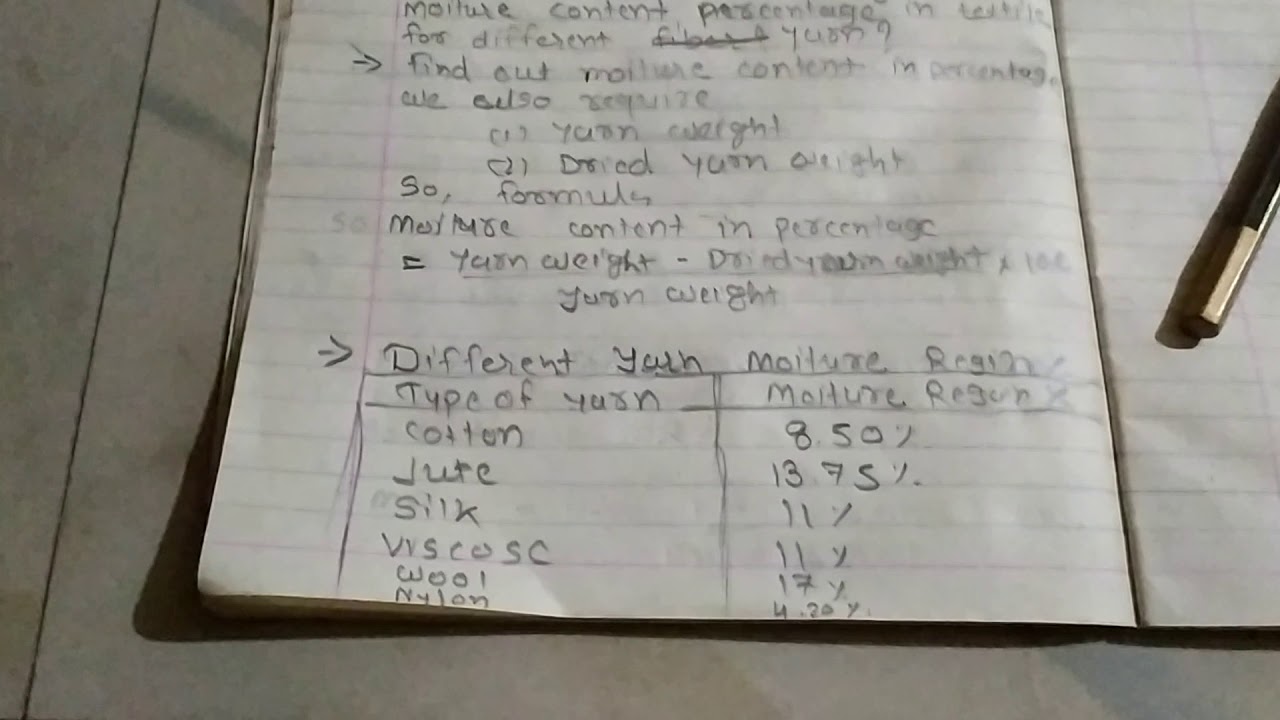 moiture content percentage in textile
for different yarn?
→ find out moiture content in percentag
we also require
(1) yarn weight
(2) Dried yarn weight
So, formula
So Moiture content in percentage
= yarn weight - Dried yarn weight x 100
yarn weight
→ Different yarn moiture Regin %
Type of yarn moiture Regun %
cotton 8.50%
Jute 13.75%.
Silk 11%
Viscose 11%
wool 17%
Nylon 4.20%.